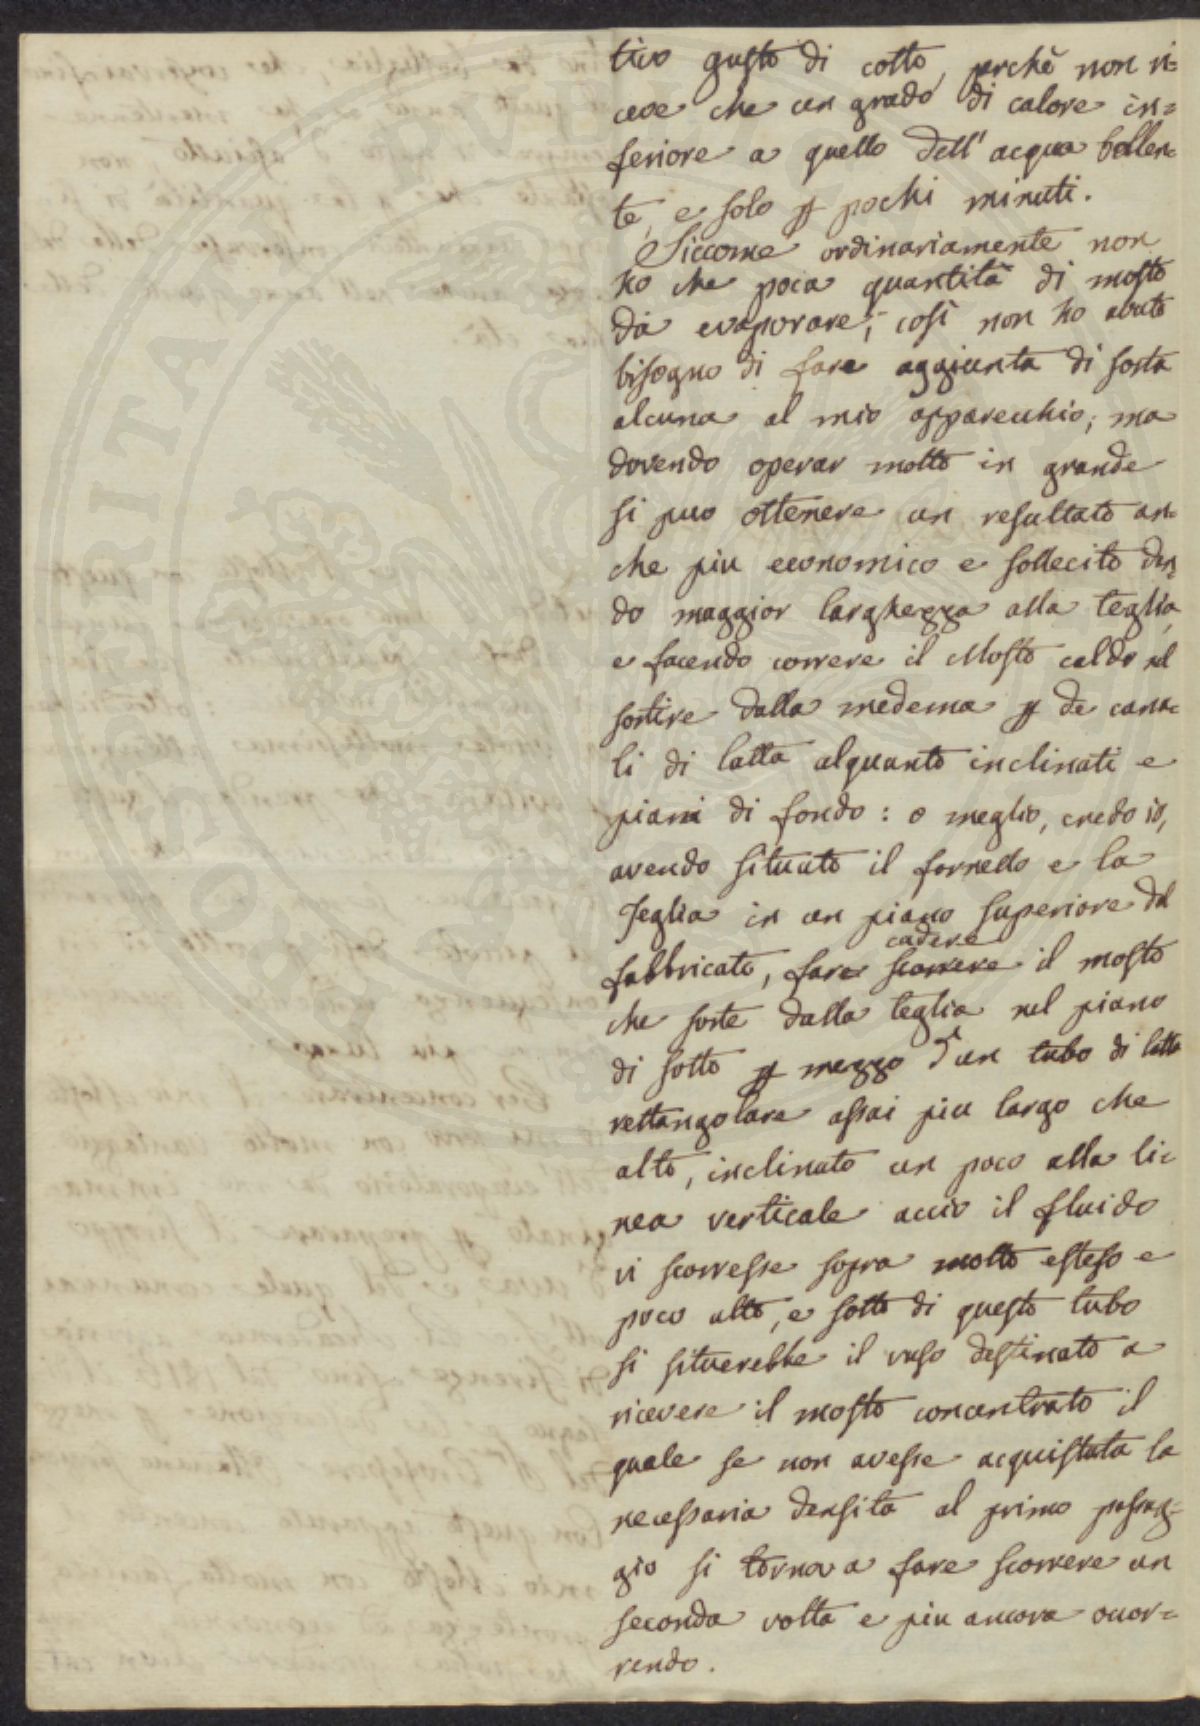 tivo gusto di cotto, perchè non ri=
ceve che un grado di calore in=
feriore a quello dell' acqua bollen=
te, e solo p pochi minuti.
Siccome ordinariamente non
ho che poca quantità di mosto
da evaporare, così non ho avuto
bisogno di fare aggiunta di sorta
alcuna al mio apparecchio; ma
dovendo operar molto in grande
si puo ottenere un resultato an=
che piu economico e sollecito dan=
do maggior larghezza alla teglia,
e facendo correre il Mosto caldo nel
sortire dalla medema p de cana=
li di latta alquanto inclinati e
piani di fondo: o meglio, credo io,
avendo situato il fornello e la
Teglia in un piano superiore del
fabbricato, fare scorrere cadere il mosto
che sorte dalla teglia nel piano
di sotto p mezzo d'un tubo di latta
rettangolare assai piu largo che
alto, inclinato un poco alla li=
nea verticale accio il fluido
vi scorresse sopra molto esteso e
poco alto, e sotto di questo tubo
si situerebbe il vaso destinato a
ricevere il mosto concentrato il
quale se non avesse acquistata la
necessaria densita al primo passag=
gio si torna a fare scorrere un
seconda volta e piu ancora ocor=
rendo.